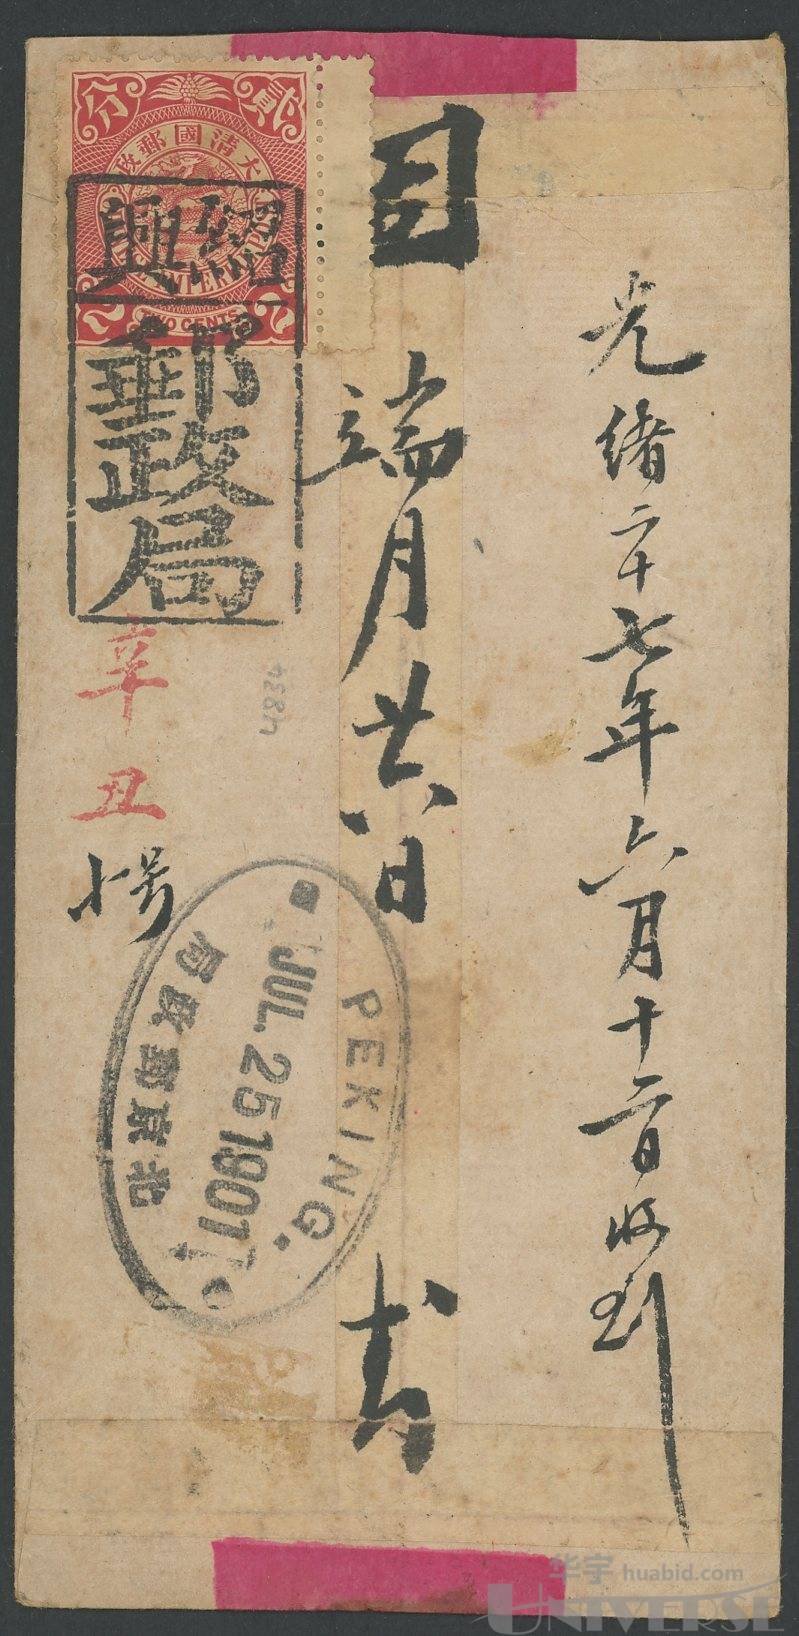 光緒二十七年六月十二日收到
固
端月廿八日
貳分
大清國郵政
IMPERIAL
2 TWO CENTS 2
紹興
郵政局
辛丑
号
PEKING.
JUL. 25 1901
北京郵政局
h834
华宇 huabid.com
UNIVERSE